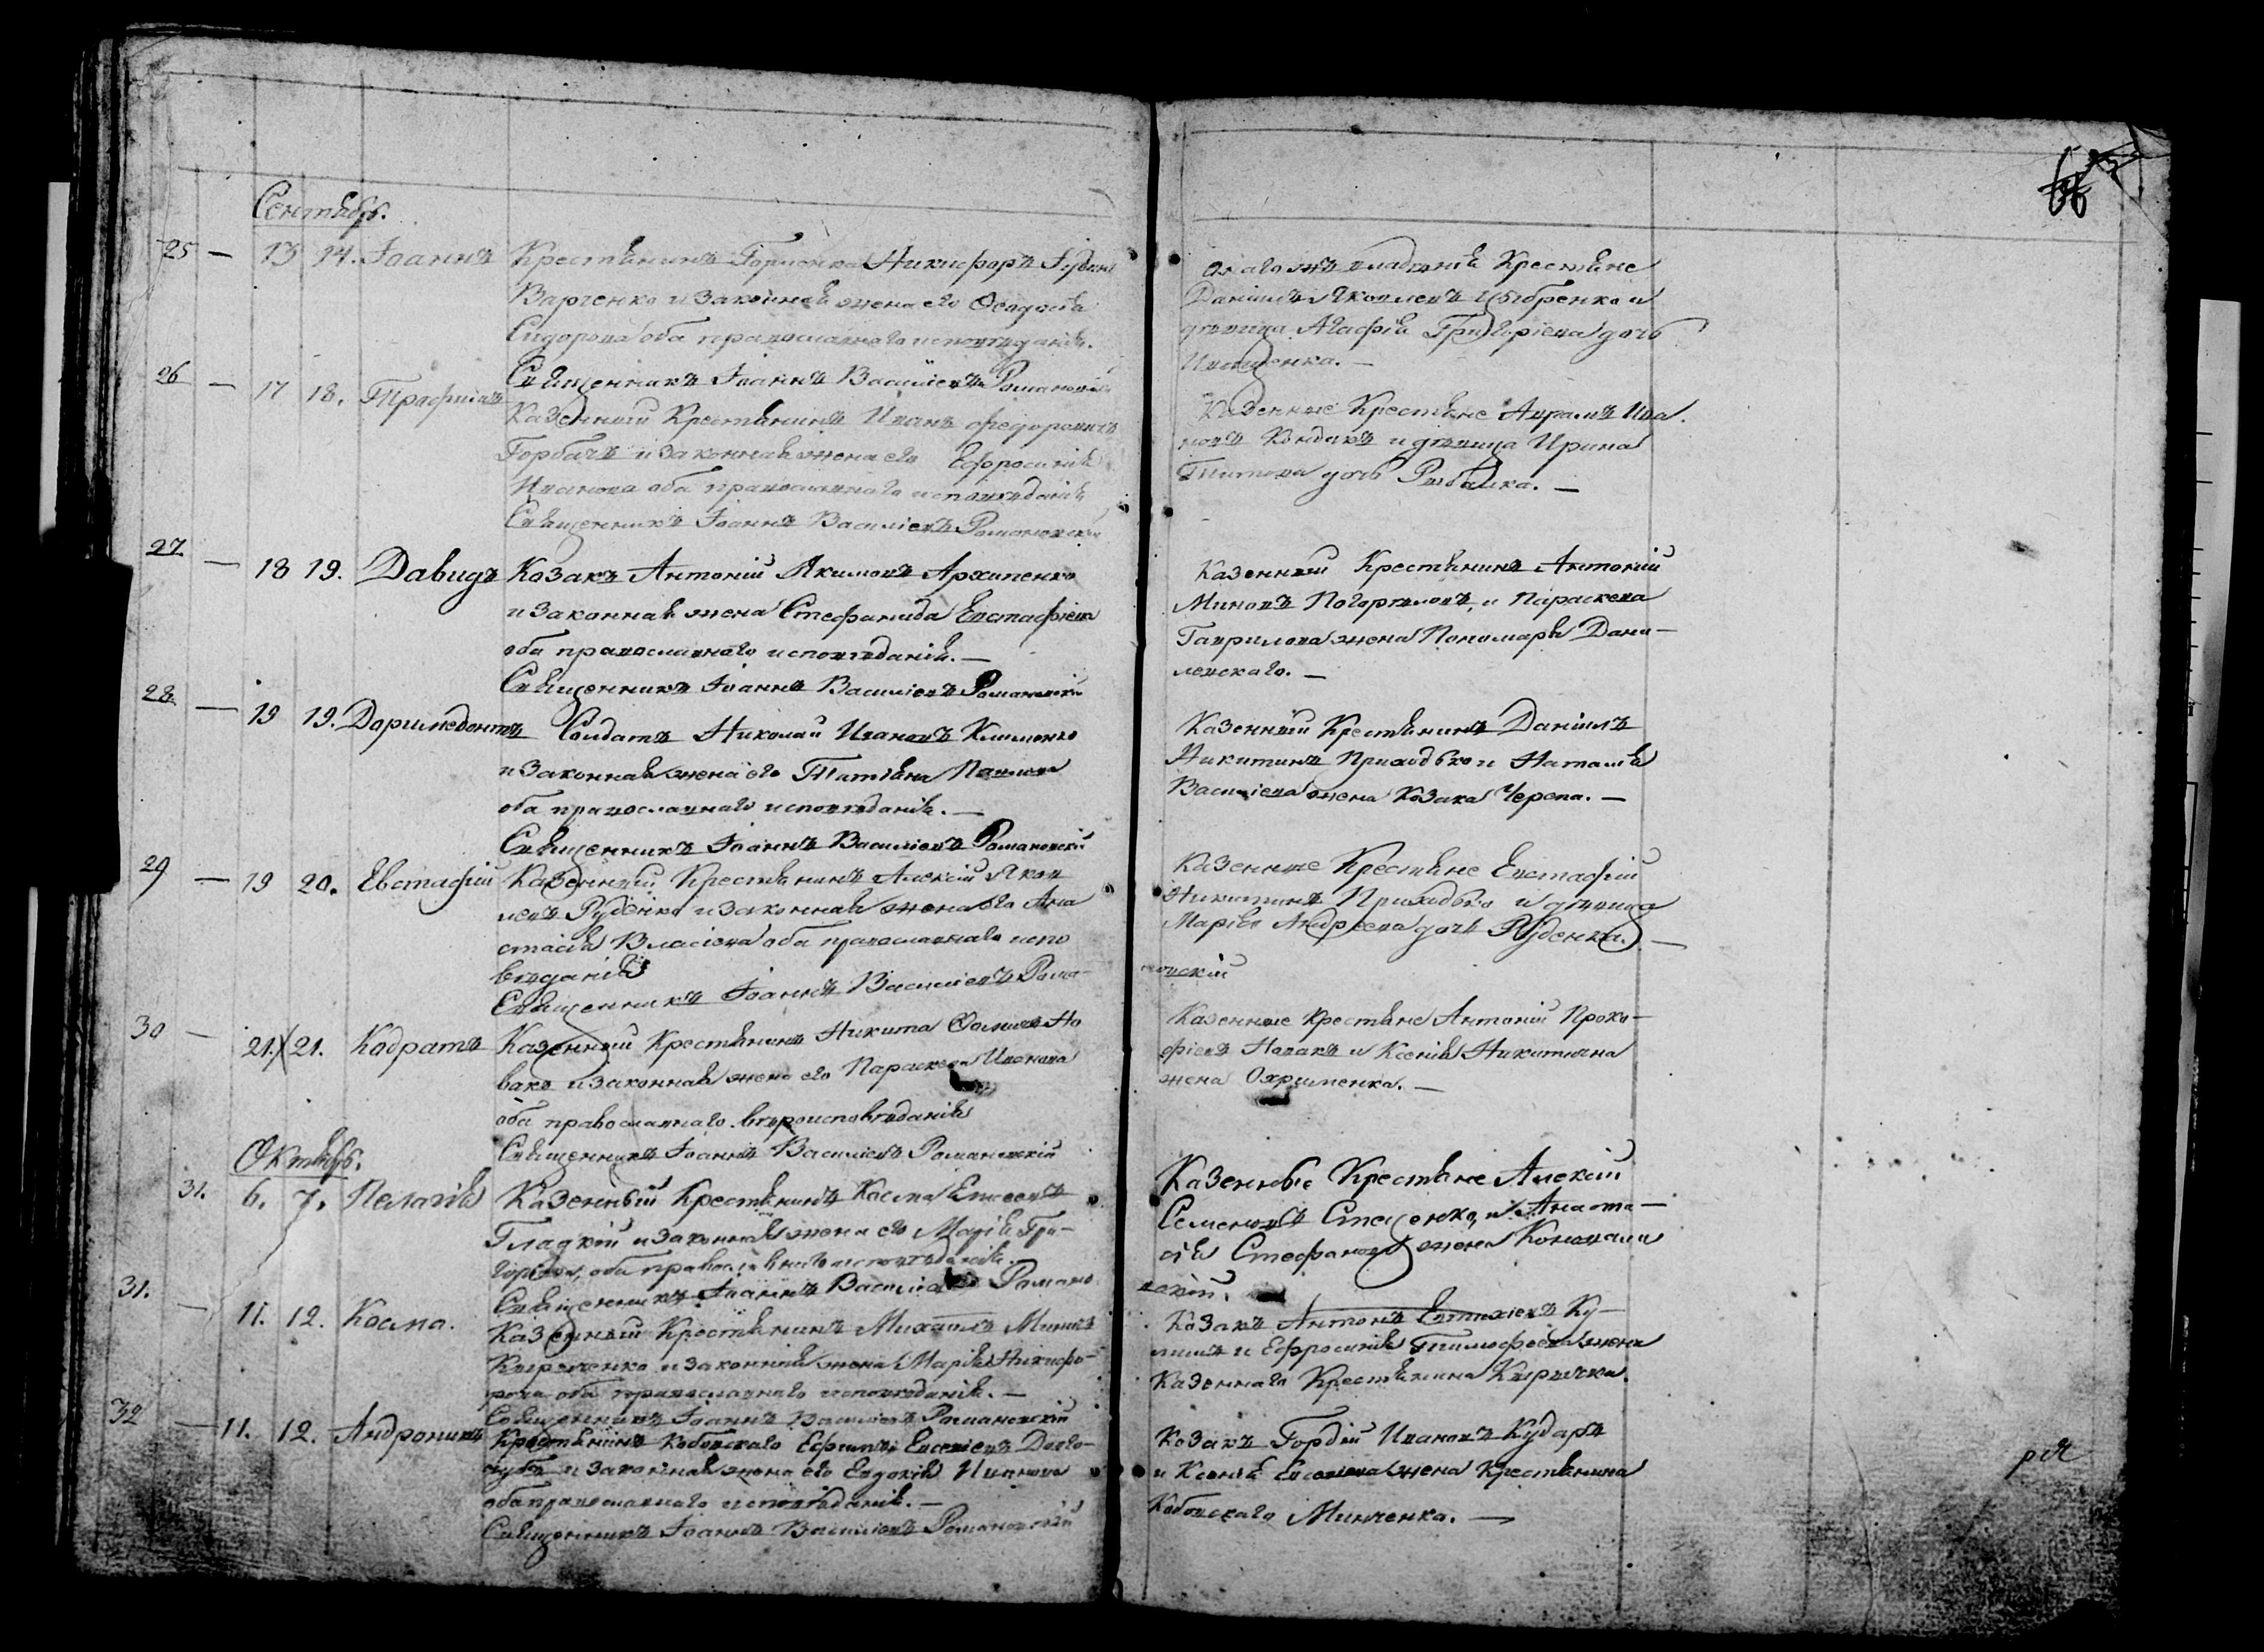 Сентябрь.
25 — 13 14. Іоаннъ Крестьянинъ Никифоръ
Варченко и законная жена его Ѳеодосія
Сидорова оба православнаго исповѣданія.
Священникъ Іоаннъ Василіевъ Романовскій
26 — 17 18. Трофимъ
Казенный Крестьянинъ Иванъ Федоровичъ
Горбачъ и законная жена его Ефросинія
Иванова оба православнаго исповѣданія
Священникъ Іоаннъ Василіевъ Романовскій
27 — 18 19. Давидъ Козакъ Антоній Якимовъ Архипенко
и законная жена Стефанида Евстафіева
оба православнаго исповѣданія. —
Священникъ Іоаннъ Василіевъ Романовскій
28 — 19 19. Доримедонтъ Солдатъ Николай Ивановъ Клименко
и законная жена его Татіяна Павлова
оба православнаго исповѣданія. —
Священникъ Іоаннъ Василіевъ Романовскій
29 — 19 20. Евстафій Казенный Крестьянинъ Алексій Яков
левъ Руденко и законная жена его Ана
стасія Власіева оба православнаго испо
вѣданія
Священникъ Іоаннъ Василіевъ Рома-
30 — 21. 21. Кодратъ Казенный Крестьянинъ Никита Ѳоминъ Но
вакъ и законная жена его Параскева Иванова
оба православнаго вѣроисповѣданія
Священникъ Іоаннъ Василіевъ Романовскій
Октябрь.
31. 6. 7. Пелагія Казенный Крестьянинъ Косма Елисеевъ
Гладкій и законная жена его Марія Гри-
горіева, оба православнаго исповѣданія.
Священникъ Іоаннъ Василіевъ Романо
31. — 11. 12. Косма. Казенный Крестьянинъ Михаилъ Мининъ
Кириченко и законная жена Марія Никифо-
рова оба православнаго исповѣданія. —
Священникъ Іоаннъ Василіевъ Романовскій
32 — 11. 12. Андроникъ Крестьянинъ Кобовскаго Евсевіевъ Долго-
и законная жена его Евдокія Иванова
оба православнаго исповѣданія. —
Священникъ Іоаннъ Василіевъ Романовскій
владѣнія Крестьяне
Даніилъ Яковлевъ и
дѣвица Агафія Григоріева дочь
Иващенка. —
Казенные Крестьяне Аврамъ Ива
новъ Кондакъ и дѣвица Ирина
Титова дочь Рыбалка. —
Казенный Крестьянинъ Антоній
Миновъ Погорѣловъ, и Параскева
Гаврилова жена Пономаря Дани-
левскаго. —
Казенный Крестьянинъ Даніилъ
Никитинъ Приходько и Наталія
Василіева жена Козака Черепа. —
Казенные Крестьяне Евстафій
Никитинъ Приходько и дѣвица
Марія Андреева дочь Руденка. —
новскій
Казенные Крестьяне Антоній Проко-
фіевъ Новакъ и Ксенія Никитична
жена Охрименка. —
Казенные Крестьяне Алексій
Семеновъ Стеценко, и Анаста-
сія Стефанова жена
вскій.
Козакъ Антонъ Евтихіевъ Ку-
и Ефросинія Тимофеева жена
Казеннаго Крестьянина Киричка.
Козакъ Гордій Ивановъ Кударъ
и Ксенія жена Крестьянина
Кобовскаго Минченка. —